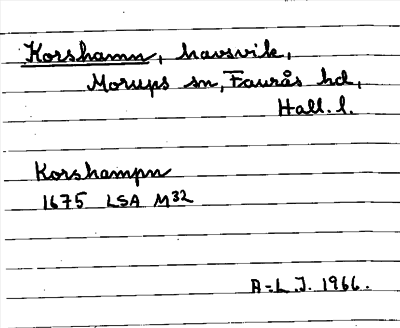 Korshamn, havsvik,
Morups sn, Faurås hd,
Hall. l.
Korshampn
1675 LSA M32
A-L.J. 1966.